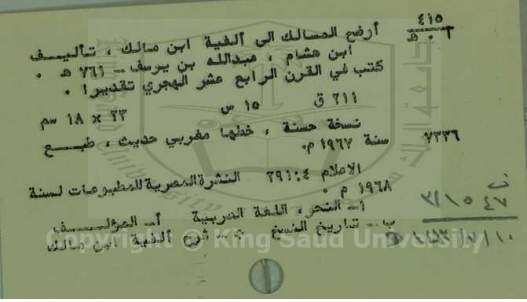 ٤١٥
٠ هـ
أرضح المسالك الى ألفية ابن مالك ، تأليف
ابن هشام ، عبدالله بن يرسف - ٧٦١ هـ .
كتب في القرن الرابع عشر الهجري تقديرا .
٢١١ ق ١٥ س ٢٣ × ١٨ سم
٧٣٣٦ نسخة حسنة ، خطها مغربي حديث ، طبع
سنة ١٩٦٧ م.
الاعلام ٤:٢٩١ النشرة المصرية للمطبوعات لسنة
١٩٦٨ م .
أ- النحر، اللغة العربية أ- المؤلف
ب - تاريخ النسخ ج - شرح ألفية ابن مالك
Copyright © King Saud University